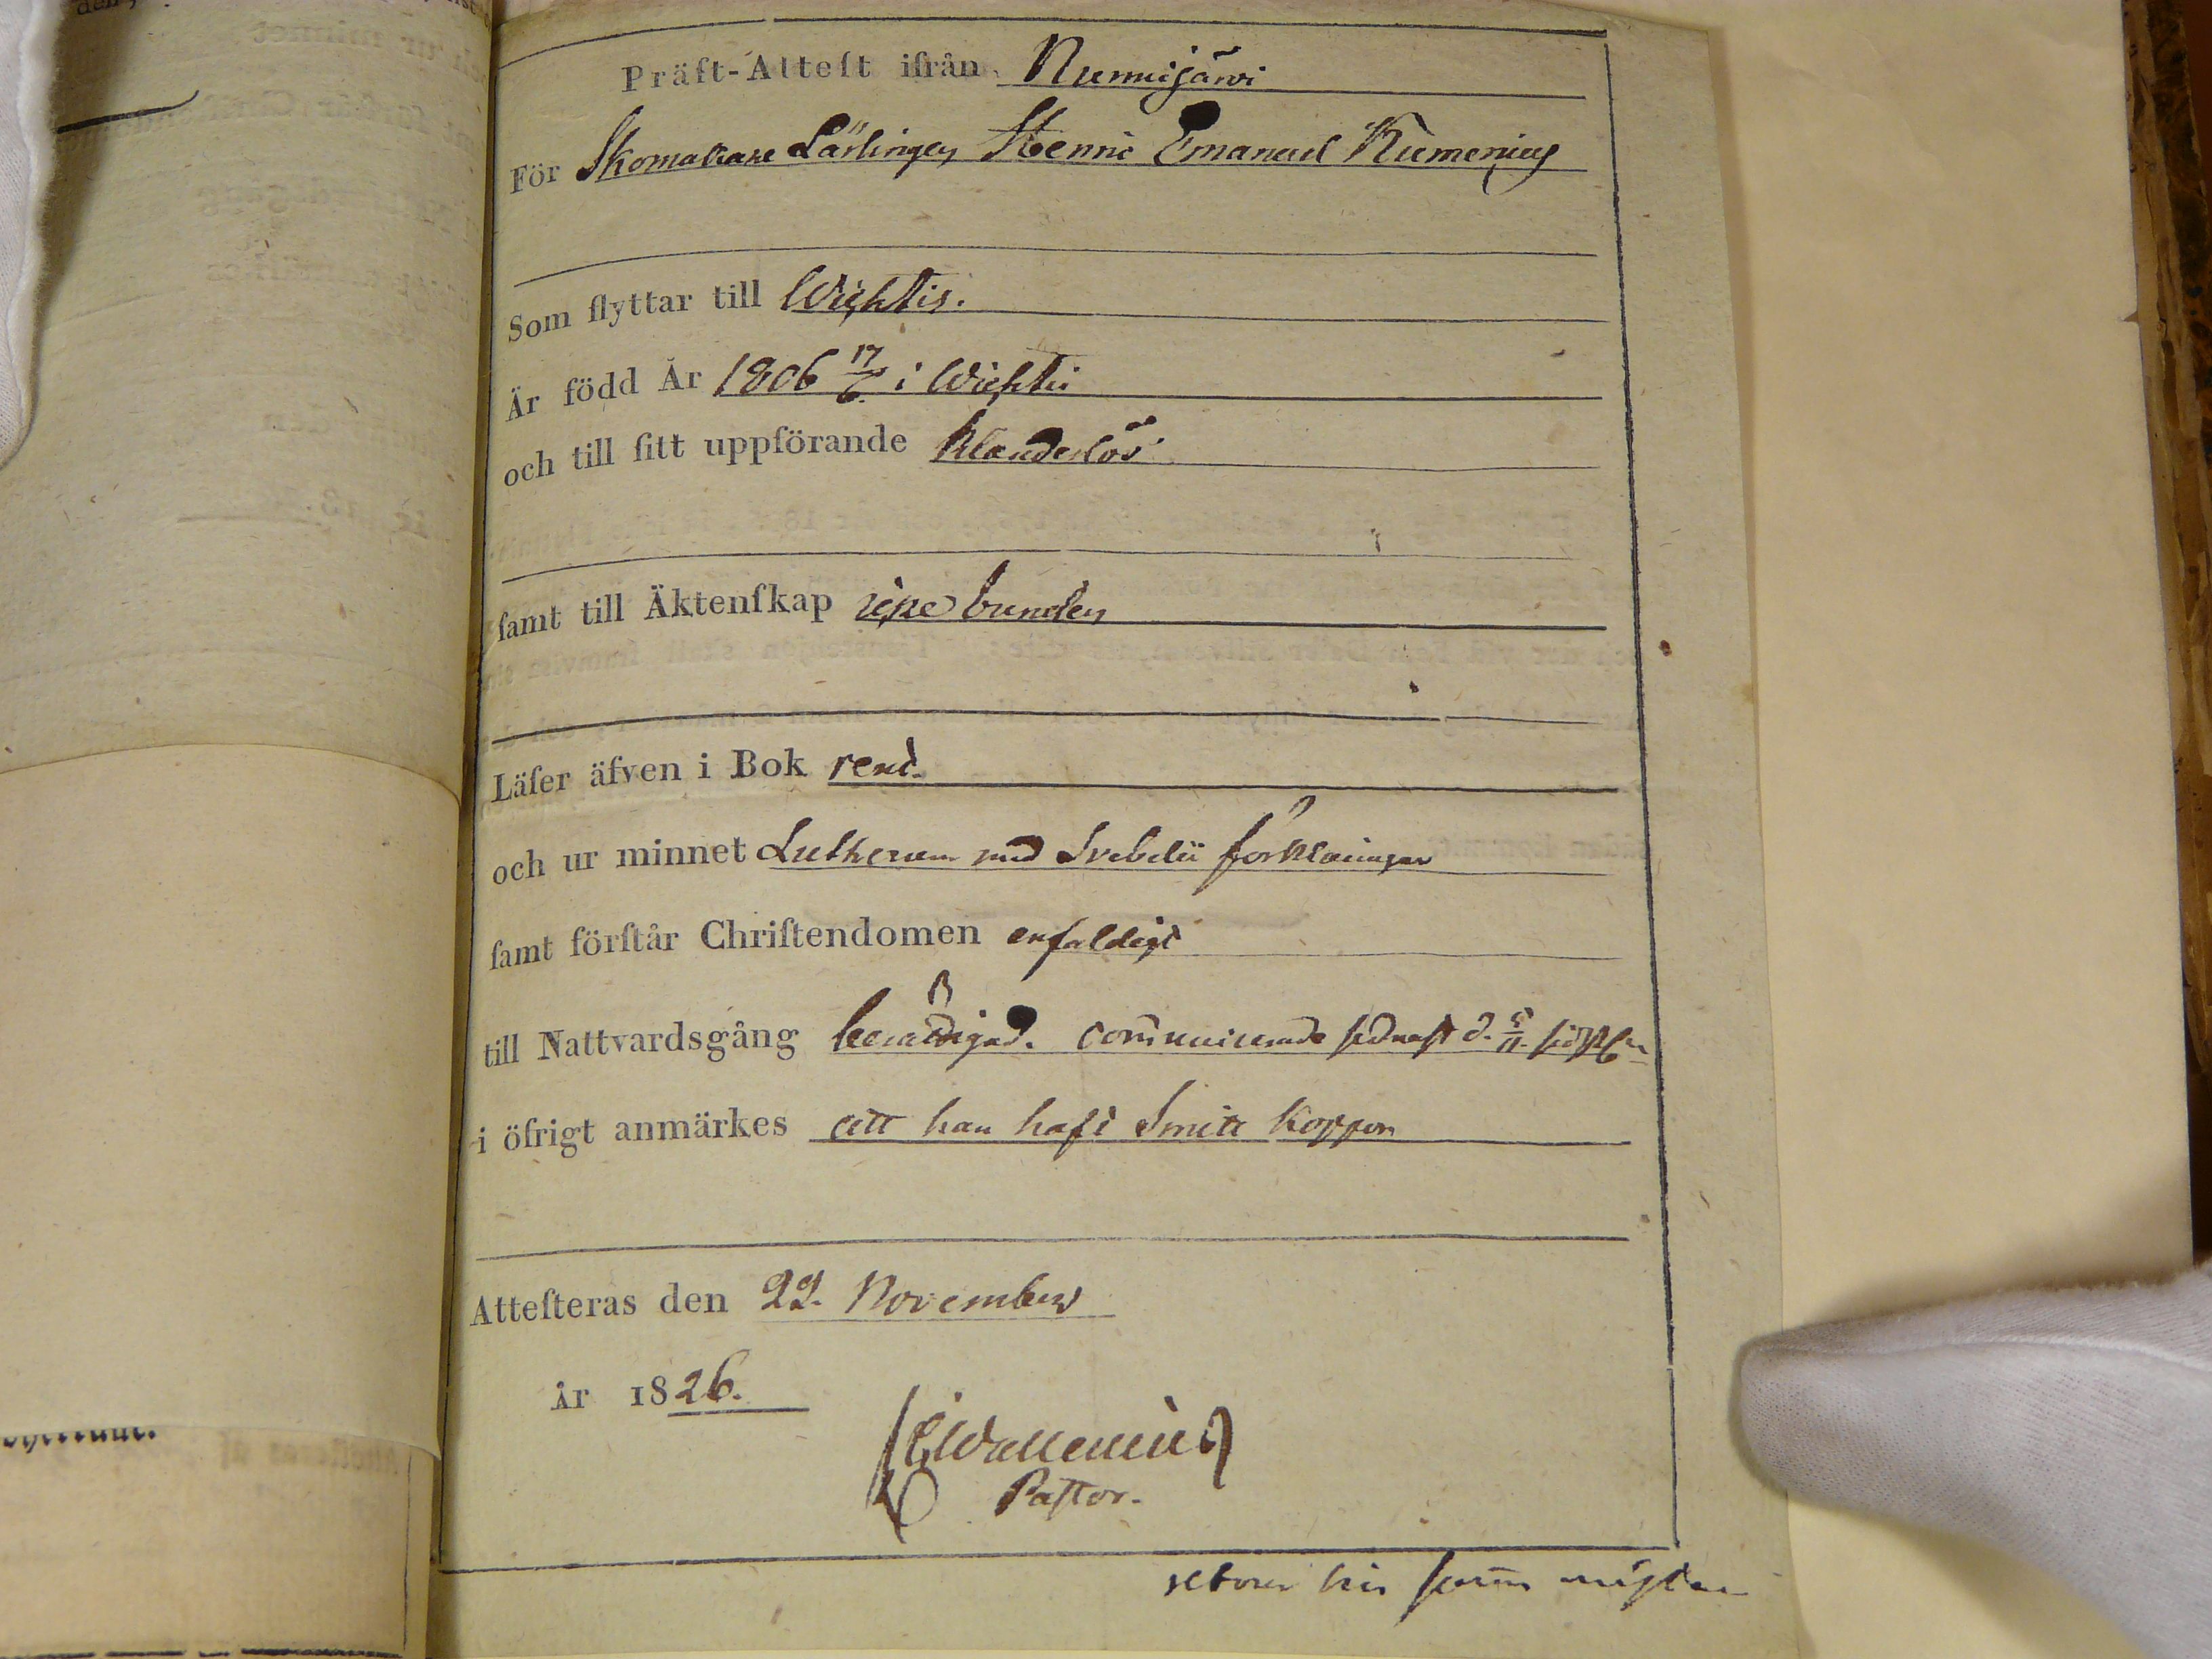 Präſt-Atteſt ifrån Nummijärvi
För Skomakare Lärlingen Henric Emanuel Kumenius
Som flyttar till Wichtis.
Är född År 1806 17/6. i Wichtis
och till ſitt uppförande klanderlös
ſamt till Äktenſkap icke bunden
Läſer äfven i Bok rent.
och ur minnet Lutherum med Svebelii förklaringar
ſamt förſtår Chriſtendomen enfaldigt
till Nattvardsgång berättigad. communicerade sednast d. 5/11.
i öfrigt anmärkes att han haft Smitt koppor
Atteſteras den 22. November
År 1826.
Wallenius
Pastor.